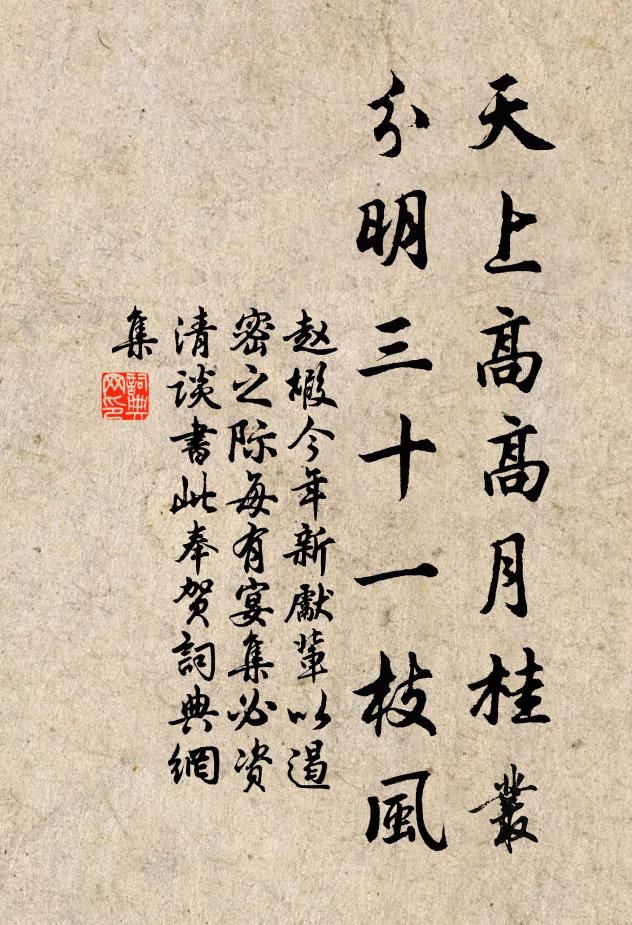 天上高高月桂叢
分明三十一枝風
赵嘏今年新獻輩以遏
密之际每有宴集必资
清谈書此奉贺詞典網
集
詞典網印